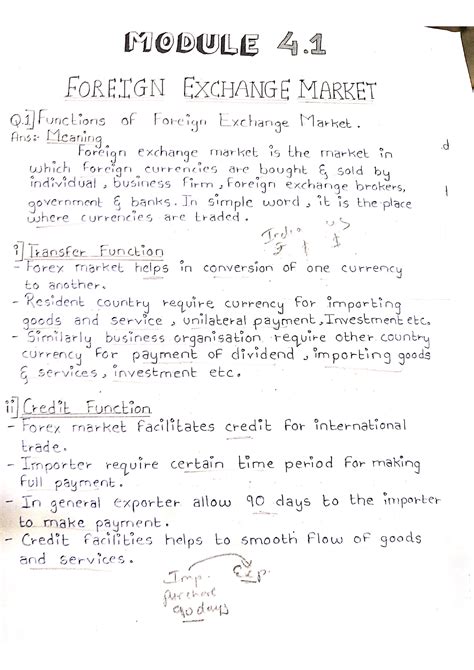 MODULE 4.1
FOREIGN EXCHANGE MARKET
Q.1] Functions of Foreign Exchange Market.
Ans:- Meaning
Foreign exchange market is the market in
which foreign currencies are bought & sold by
individual, business firm, foreign exchange brokers,
government & banks. In simple word, it is the place
where currencies are traded.
India US
₹ $
i] Transfer Function
- Forex market helps in conversion of one currency
to another.
- Resident country require currency for importing
goods and service, unilateral payment, Investment etc.
- Similarly business organisation require other country
currency for payment of dividend, importing goods
& services, investment etc.
ii] Credit Function
- Forex market facilitates credit for international
trade.
- Importer require certain time period for making
full payment.
- In general exporter allow 90 days to the importer
to make payment.
- Credit facilities helps to smooth flow of goods
and services.
Imp. Exp.
purchase
90 days